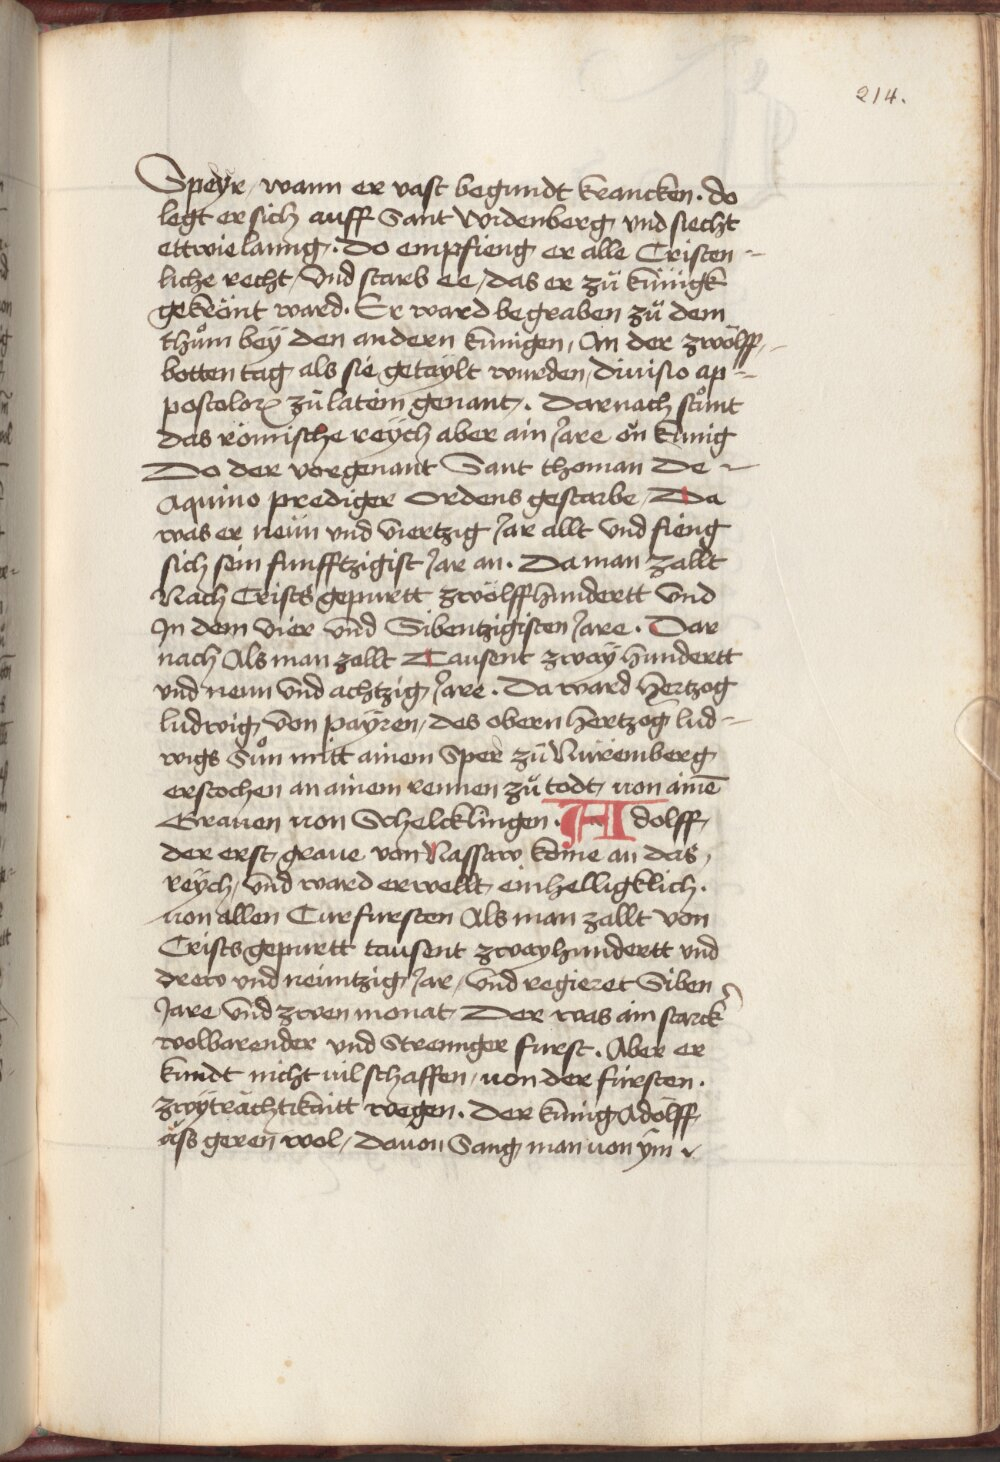 214.
Speyr, wann er vast begundt krancken. do
legt er sich auff Sant Widenberg, vnd siecht
ettwielanng. Do empfieng er alle Cristen-
liche recht, vnd starb ee, das er zů künigk
gekrönt ward. Er ward begraben zů dem
thům bey den andern künigen, An der zwölff,
botten tag als sie getaylt wurden, diuisio ap-
postoloꝝ zů latein genant. Darnach stůnt
das römische reych aber ain Jare on künig
Do der vorgenant Sant thoman De
Aquino prediger Ordens gestarbe, Da
was er neün vnd viertzig Jar allt vnd fieng
sich sein funfftzigist Jar an. Da man zallt
Nach Crists gepurtt zwölffhundertt vnd
In dem vier vnd Sibentzigisten Jare. Dar
nach Als man zallt Tausent zway hundertt
vnd neun vnd achtzig Jare. Da ward hertzog
ludwig von payren, des obern hertzog lud-
wigs Sůn mitt ainem Sper zů Nuremberg
erstochen an ainem rennen zů todt, von ainē
Grauen von Schelcklingen. Adolff,
der erst graue von Nassaw kome an das,
reych, vnd ward erwellt einhelligklich.
von allen Curfursten Als man zallt von
Crists gepurtt tausent zwayhundertt vnd
drew vnd neuntzig Jar, vnd regieret Siben
Jare vnd zwen monat Der was ain starck
wolbarender vnd Strennger furst. Aber er
kundt nicht vil schaffen, von der fürsten.
zwyträchtikaitt wegen. Der künig Adolff,
äss geren wol, dauon Sang man von ym